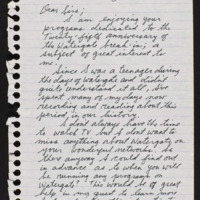 Dear Sirs;
I am enjoying your
programs dedicated to the
Twenty-fifth anniversary of
the Watergate break-in; a
subject of great interest to
me!
Since I was a teenager during
the days of Watergate and didn't
quite understand it all, I've
spent many of my days now
recording and reading about this
period in our history.
I don't always have the time
to watch TV but I don't want to
miss anything about Watergate on
your wonderful networks. Is
there anyway I could find out
in advance as to when you will
be running any programs on
Watergate? This would be of great
help in my quest to learn more